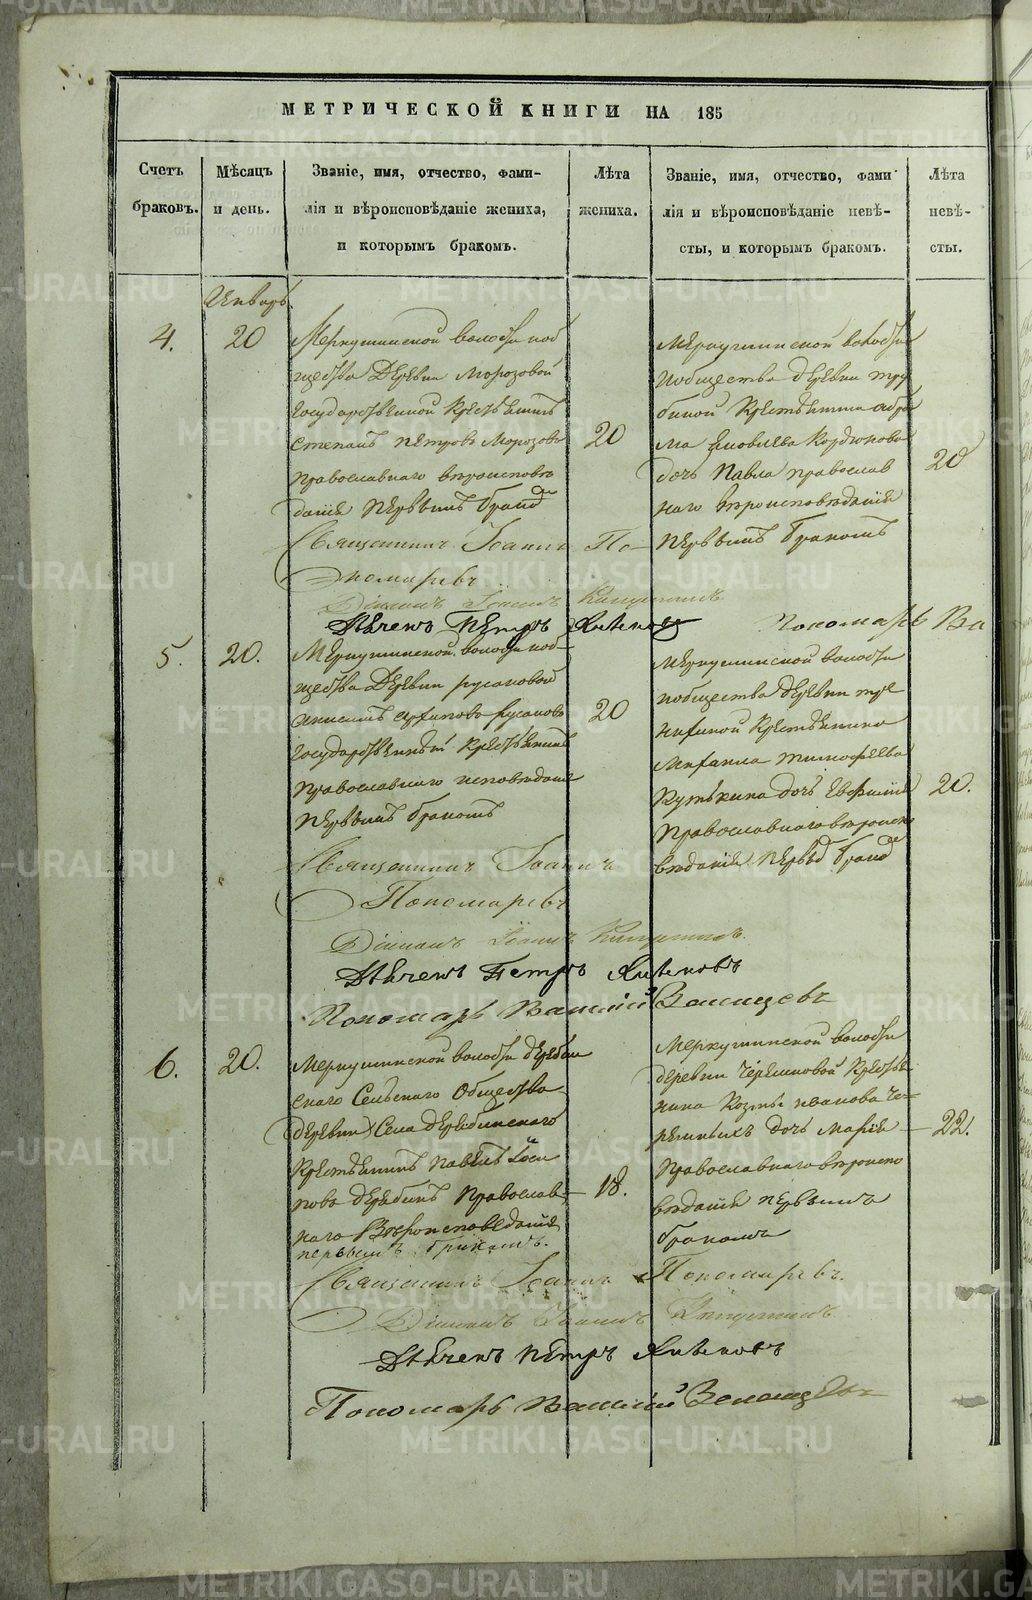 МЕТРИЧЕСКОЙ КНИГИ НА 185
Счетъ браковъ.
Мѣсяцъ и день.
Званіе, имя, отчество, фами-
лія и вѣроисповѣданіе жениха,
и которымъ бракомъ.
Лѣта жениха.
Званіе, имя, отчество, фами-
лія и вѣроисповѣданіе невѣ-
сты, и которымъ бракомъ.
Лѣта невѣ-
сты.
Январь
4.
20
Меркушинской волости поб
щества Деревни Морозовой
Государственной Крестьянинъ
Степанъ Петровъ Морозовъ
православнаго вѣроисповѣ
данія первымъ бракο
20
Меркушинской волости
побщества деревни тру
биной Крестьянина абра
ма Яковлева
дочь Павла православ
наго вѣроисповѣданія
первымъ бракомъ
20
Священникъ Іоаннъ По-
номаревъ
Діаконъ Іоаннъ
Дьячекъ Петръ
Пономарь Ва
5.
20.
Меркушинской волости поб-
щества Деревни русаковой
архиповъ русаковъ
Государственный Крестьянинъ
православнаго исповѣданія
первымъ бракомъ
20
Меркушинской волости
побщества деревни тре
нихиной Крестьянина
Михаила тимофеева
Кутькина дочь Евфимія
православнаго вѣроиспо
вѣданія первы брако
20.
Священникъ Іоаннъ
Пономаревъ
Діаконъ Іоаннъ
Дьячекъ Петръ
Пономарь Василій
6.
20.
Меркушинской волости дерябин
скаго Сельскаго Общества
деревни) Села дерябинскаго
Крестьянинъ Павелъ Іоси
повъ дерябинъ Православ-
наго Вѣроисповеданія
первымъ бракомъ.
18.
Меркушинской волости
деревни Черемновой Крестья
нина Козмы иванова Че-
ремныхъ дочь Марія
православнаго вѣроиспо
вѣданія первымъ
бракомъ
22.
Священникъ Іоаннъ Пономаревъ.
Діаконъ Іоаннъ
Дьячекъ Петръ
Пономарь Василій
METRIKI.GASO-URAL.RU